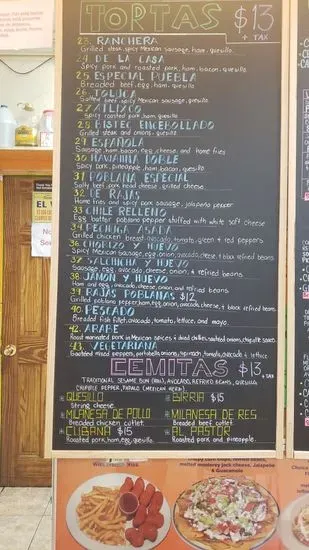 TORTAS $13
+ TAX
23. RANCHERA
Grilled steak, spicy Mexican sausage, ham, quesillo.
24. DE LA CASA
Spicy pork and roasted pork, ham, bacon, quesillo.
25. ESPECIAL PUEBLA
Breaded beef, egg, ham, quesillo.
26. TOLUCA
Salted beef, spicy Mexican sausage, quesillo
27. ATLIXCO
Spicy roasted pork, ham, quesillo.
28. BISTEC ENCEBOLLADO
Grilled steak and onions, quesillo.
29. ESPAÑOLA
Sausage, ham, bacon, egg, cheese, and home fries
30. HAWAIINA DOBLE
Spicy pork, pineapple, ham, bacon, quesillo.
31. POBLANA ESPECIAL
Salty beef, pork head cheese, grilled cheese.
32. DE RAJAS
Home fries and spicy pork sausage, jalapeño pepper
33. CHILE RELLENO
Egg batter poblano pepper stuffed with white soft cheese
34. PECHUGA ASADA
Grilled chicken breast, avocado, tomato, green & red peppers
36. CHORIZO Y HUEVO
Spicy Mexican sausage, egg, onion, avocado, cheese, & black refried beans
37. SALCHICHA Y HUEVO
Sausage, egg, avocado, cheese, onion, & refried beans
38. JAMON Y HUEVO
Ham and egg, avocado, cheese, onion, and refried beans
39. RAJAS POBLANAS $12
Grilled poblano pepper, ham, egg, onion, avocado, cheese, & black refried beans
40. PESCADO
Breaded fish fillet, avocado, tomato, lettuce, and mayo.
42. ARABE
Roast marinated pork in Mexican spices & dried chilies, sautéed onions, chipotle sauce
43. VEGETARIANA
Sauteed mixed peppers, portobello, onions, spinach, tomato, avocado & lettuce
CEMITAS $13 + TAX
TRADITIONAL SESAME BUN (ROLL), AVOCADO, REFRIED BEANS, QUESILLO
CHIPOTLE PEPPER, PAPALO (MEXICAN HERB)
QUESILLO
String cheese
BIRRIA $15
MILANESA DE POLLO
Breaded chicken cutlet
MILANESA DE RES
Breaded beef cutlet
CUBANA $15
Roasted pork, ham, egg, quesillo.
AL PASTOR
Roasted pork and pineapple.
melted monterey jack cheese, Jalapeño
& Guacamole